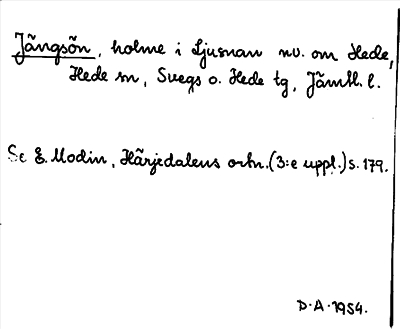 Jängsön, holme i Ljusnan nv. om Hede,
Hede sn, Svegs o. Hede tg, Jämtl. l.
Se E. Modin, Härjedalens ortn. (3:e uppl.) s. 179.
D.A. 1954.